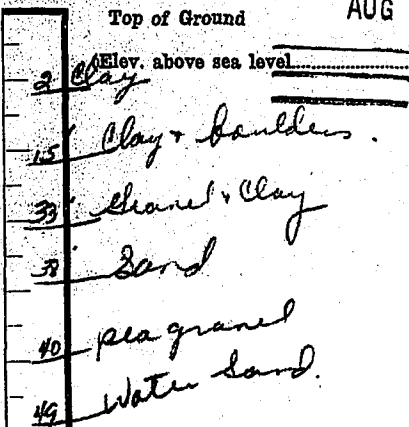 AUG
Top of Ground
Elev. above sea level
2 Clay
15 Clay & boulders.
33 Gravel & Clay
38 Sand
40 pea gravel
49 Water Sand.